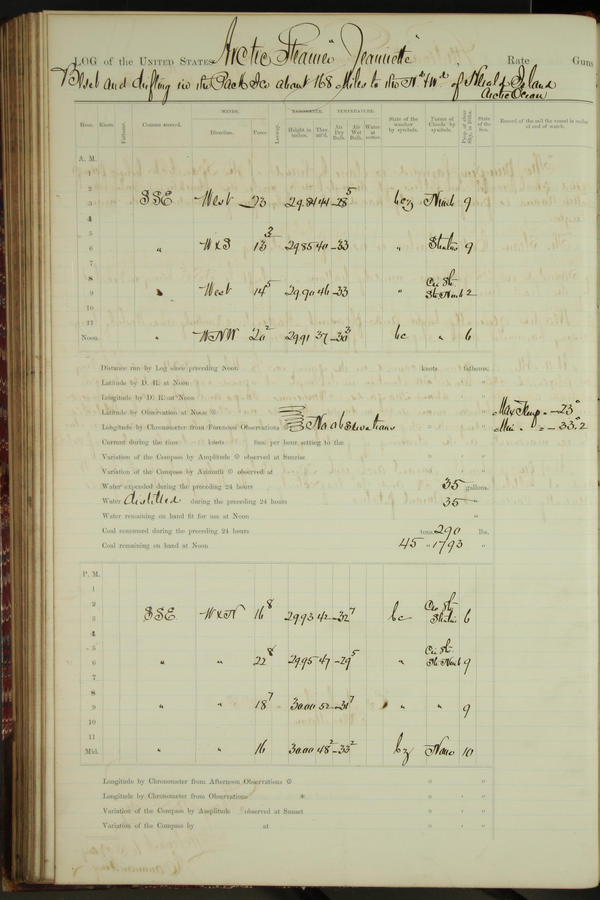 LOG of the UNITED STATES Arctic Steamer "Jeannette" Rate Guns
Beset and drifting in the Pack Ice about 168 Miles to the Nd & Wd of Herald Island
Arctic Ocean
Hour. Knots. Fathoms. Courses steered. WINDS. Direction. Force. Leeway. BAROMETER. Height in inches. Ther. att'd. TEMPERATURE. Air Dry Bulb. Air Wet Bulb. Water at surface. State of the weather by symbols. Forms of Clouds by symbols. Prop. of clear Sky, in 10ths. State of the Sea. Record of the sail the vessel is under at end of watch.
A. M.
1
2
3 SSE West 23 29.84 44 -28 5 bcz Nimb 9
4
5
6 " W x S 13 3 29.85 40 -33 " Stratus 9
7
8 Cir Str
9 " West 14 5 29.90 46 -33 " Str Nimb 2
10
11
Noon. " WNW 20 2 29.91 37 -30 3 bc " 6
Distance run by Log since preceding Noon knots fathoms.
Latitude by D. R. at Noon ° ' "
Longitude by D. R. at Noon ° ' "
Latitude by Observation at Noon ° ' " Max Temp. = -23°
Longitude by Chronometer from Forenoon Observations No observations ° ' " Min " = -33°.2
Current during the time knots fms. per hour, setting to the
Variation of the Compass by Amplitude observed at Sunrise ° ' "
Variation of the Compass by Azimuth observed at ° ' "
Water expended during the preceding 24 hours 35 gallons.
Water distilled during the preceding 24 hours 35 "
Water remaining on hand fit for use at Noon "
Coal consumed during the preceding 24 hours tons, 290 lbs.
Coal remaining on hand at Noon 45 " 1793 "
P. M.
1
2 Cir Str
3 SSE W x N 16 8 29.93 42 -32 7 bc Stratus 6
4
5 Cir Str
6 " " 22 8 29.95 47 -29 5 " Str Nimb 9
7
8
9 " " 18 7 30.00 52 -31 7 " " 9
10
11
Mid. " " 16 30.00 48 2 -33 2 bz 10
Longitude by Chronometer from Afternoon Observations ° ' "
Longitude by Chronometer from Observations * ° ' "
Variation of the Compass by Amplitude observed at Sunset ° ' "
Variation of the Compass by at ° ' "